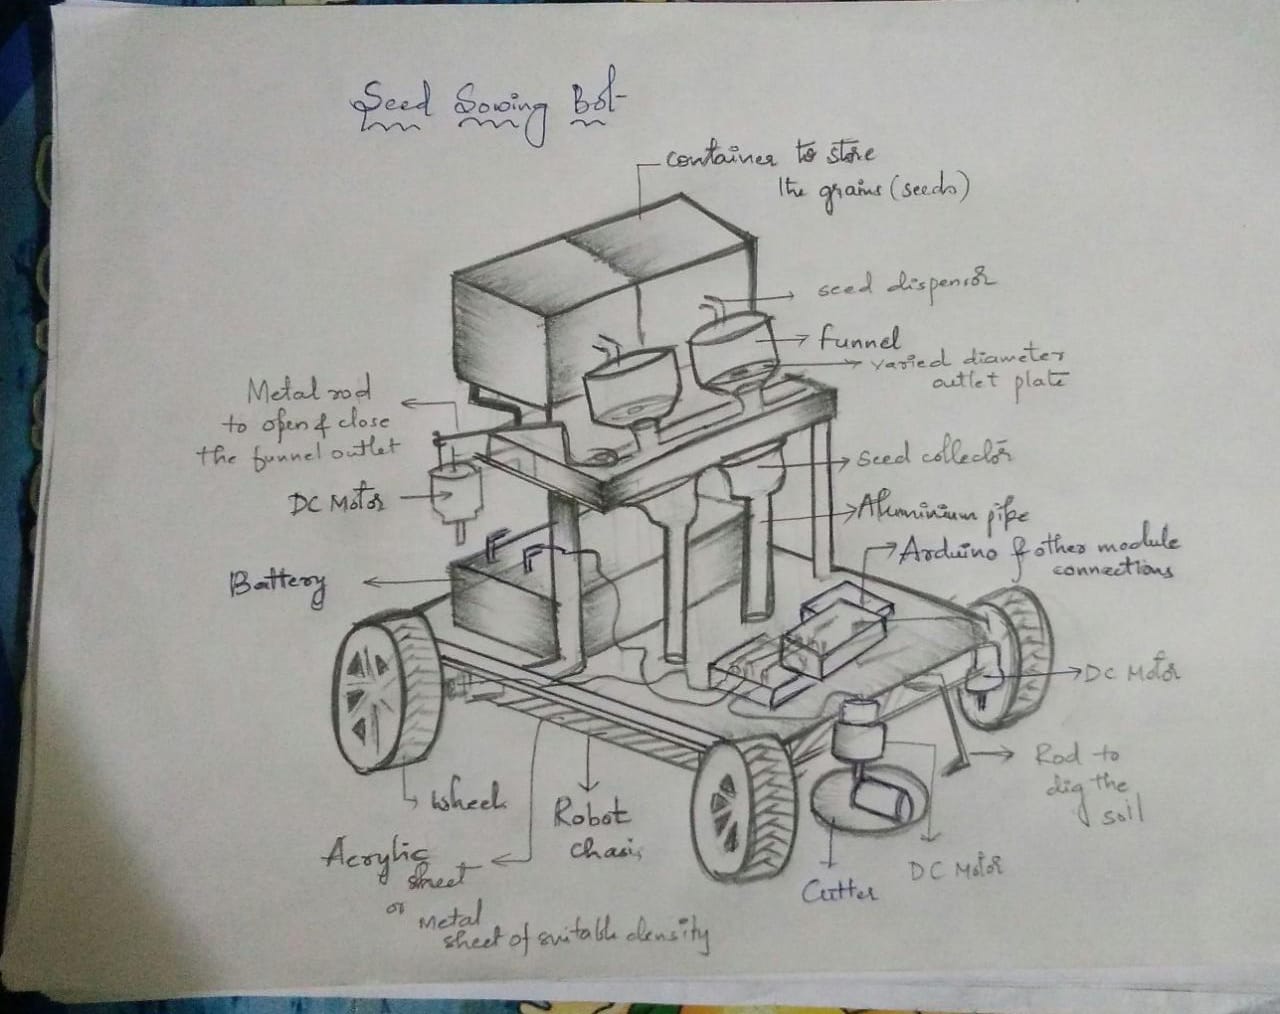 Seed Sowing Bot
container to store
the grains (seeds)
seed dispensor
funnel
varied diameter
outlet plate
Metal rod
to open & close
the funnel outlet
seed collector
DC Motor
Aluminium pipe
Arduino & other module
connections
Battery
DC Motor
Rod to
dig the
soil
wheel
Robot
chasis
Acrylic
sheet
or
Metal
sheet of suitable density
DC Motor
Cutter